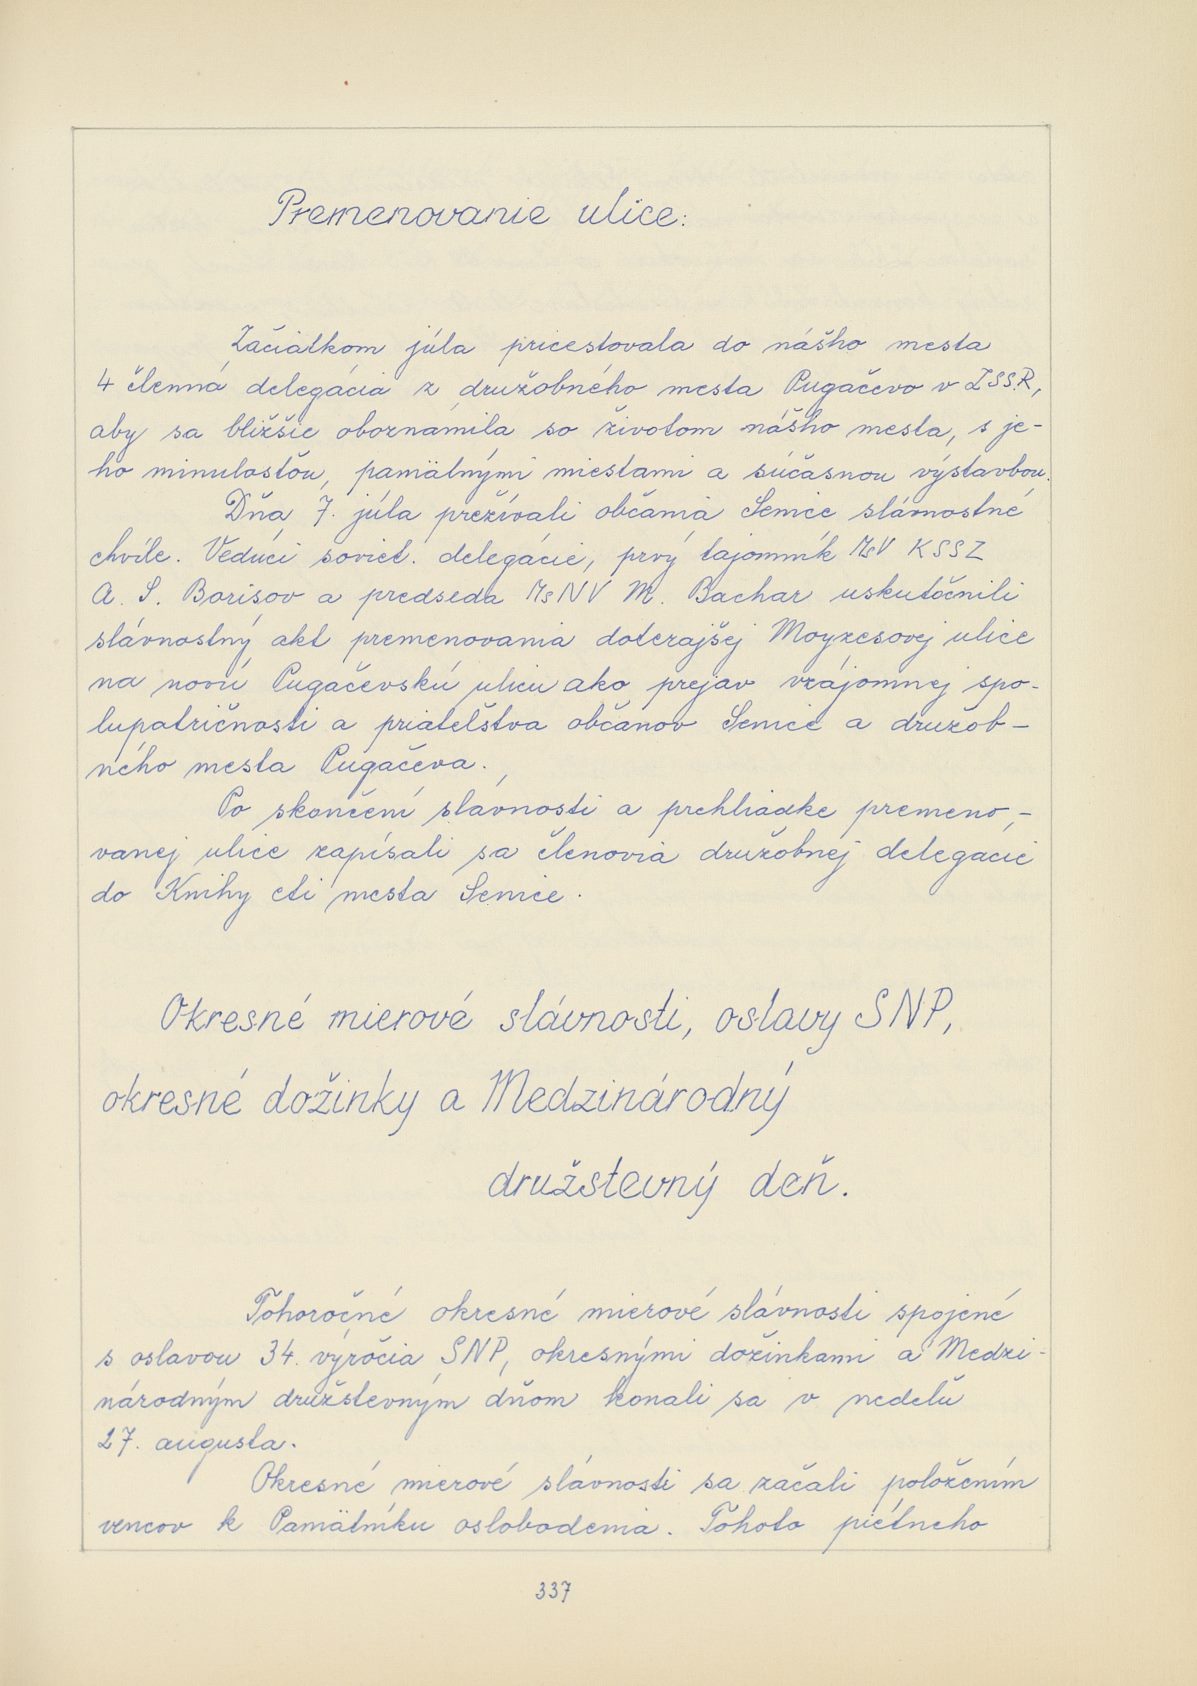 Premenovanie ulice:
Začiatkom júla pricestovala do nášho mesta
4 členná delegácia z družobného mesta Pugačevo v ZSSR,
aby sa bližšie oboznámila so životom nášho mesta, s je-
ho minulosťou, pamätnými miestami a súčasnou výstavbou.
Dňa 7. júla prežívali občania Senice slávnostné
chvíle. Vedúci soviet. delegácie, prvý tajomník MsV KSSZ
A. S. Borisov a predseda MsNV M. Bachar uskutočnili
slávnostný akt premenovania doterajšej Moyzesovej ulice
na novú Pugačevskú ulicu ako prejav vzájomnej spo-
lupatričnosti a priateľstva občanov Senice a družob-
ného mesta Pugačeva.
Po skončení slávnosti a prehliadke premeno-
vanej ulice zapísali sa členovia družobnej delegácie
do Knihy cti mesta Senice.
Okresné mierové slávnosti, oslavy SNP,
okresné dožinky a Medzinárodný
družstevný deň.
Tohoročné okresné mierové slávnosti spojené
s oslavou 34. výročia SNP, okresnými dožinkami a Medzi-
národným družstevným dňom konali sa v nedeľu
27. augusta.
Okresné mierové slávnosti sa začali položením
vencov k Pamätníku oslobodenia. Tohoto pietneho
337